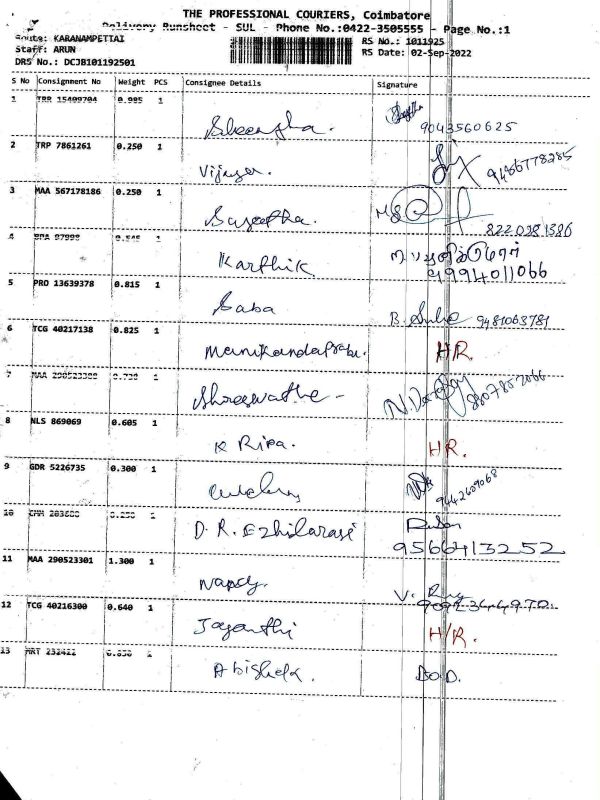 THE PROFESSIONAL COURIERS, Coimbatore
Delivery Runsheet - SUL - Phone No.:0422-3505555 - Page No.:1
Route: KARANAMPETTAI
RS No.: 1011925
Staff: ARUN
RS Date: 02-Sep-2022
DRS No.: DCJB101192501
S No Consignment No Weight PCS Consignee Details Signature
1 TRR 15409704 0.985 1
9043560625
2 TRP 7861261 0.250 1
Vijaya. 9486778285
3 MAA 567178186 0.250 1
Sajeetha.
4 1
Karthik
9994011066
5 PRO 13639378 0.815 1
Saba B. 9481063781
6 TCG 40217138 0.825 1
Manikandaprabu. HR.
7 MAA 1
8807857066
8 NLS 869069 0.605 1
K Ripa. HR.
9 GDR 5226735 0.300 1
9442609068
10 1
D.R. Ezhilarasi
9566413252
11 MAA 290523301 1.300 1
V.
12 TCG 40216300 0.640 1
Jayanthi H/R.
13 1
Abishek. BOD.